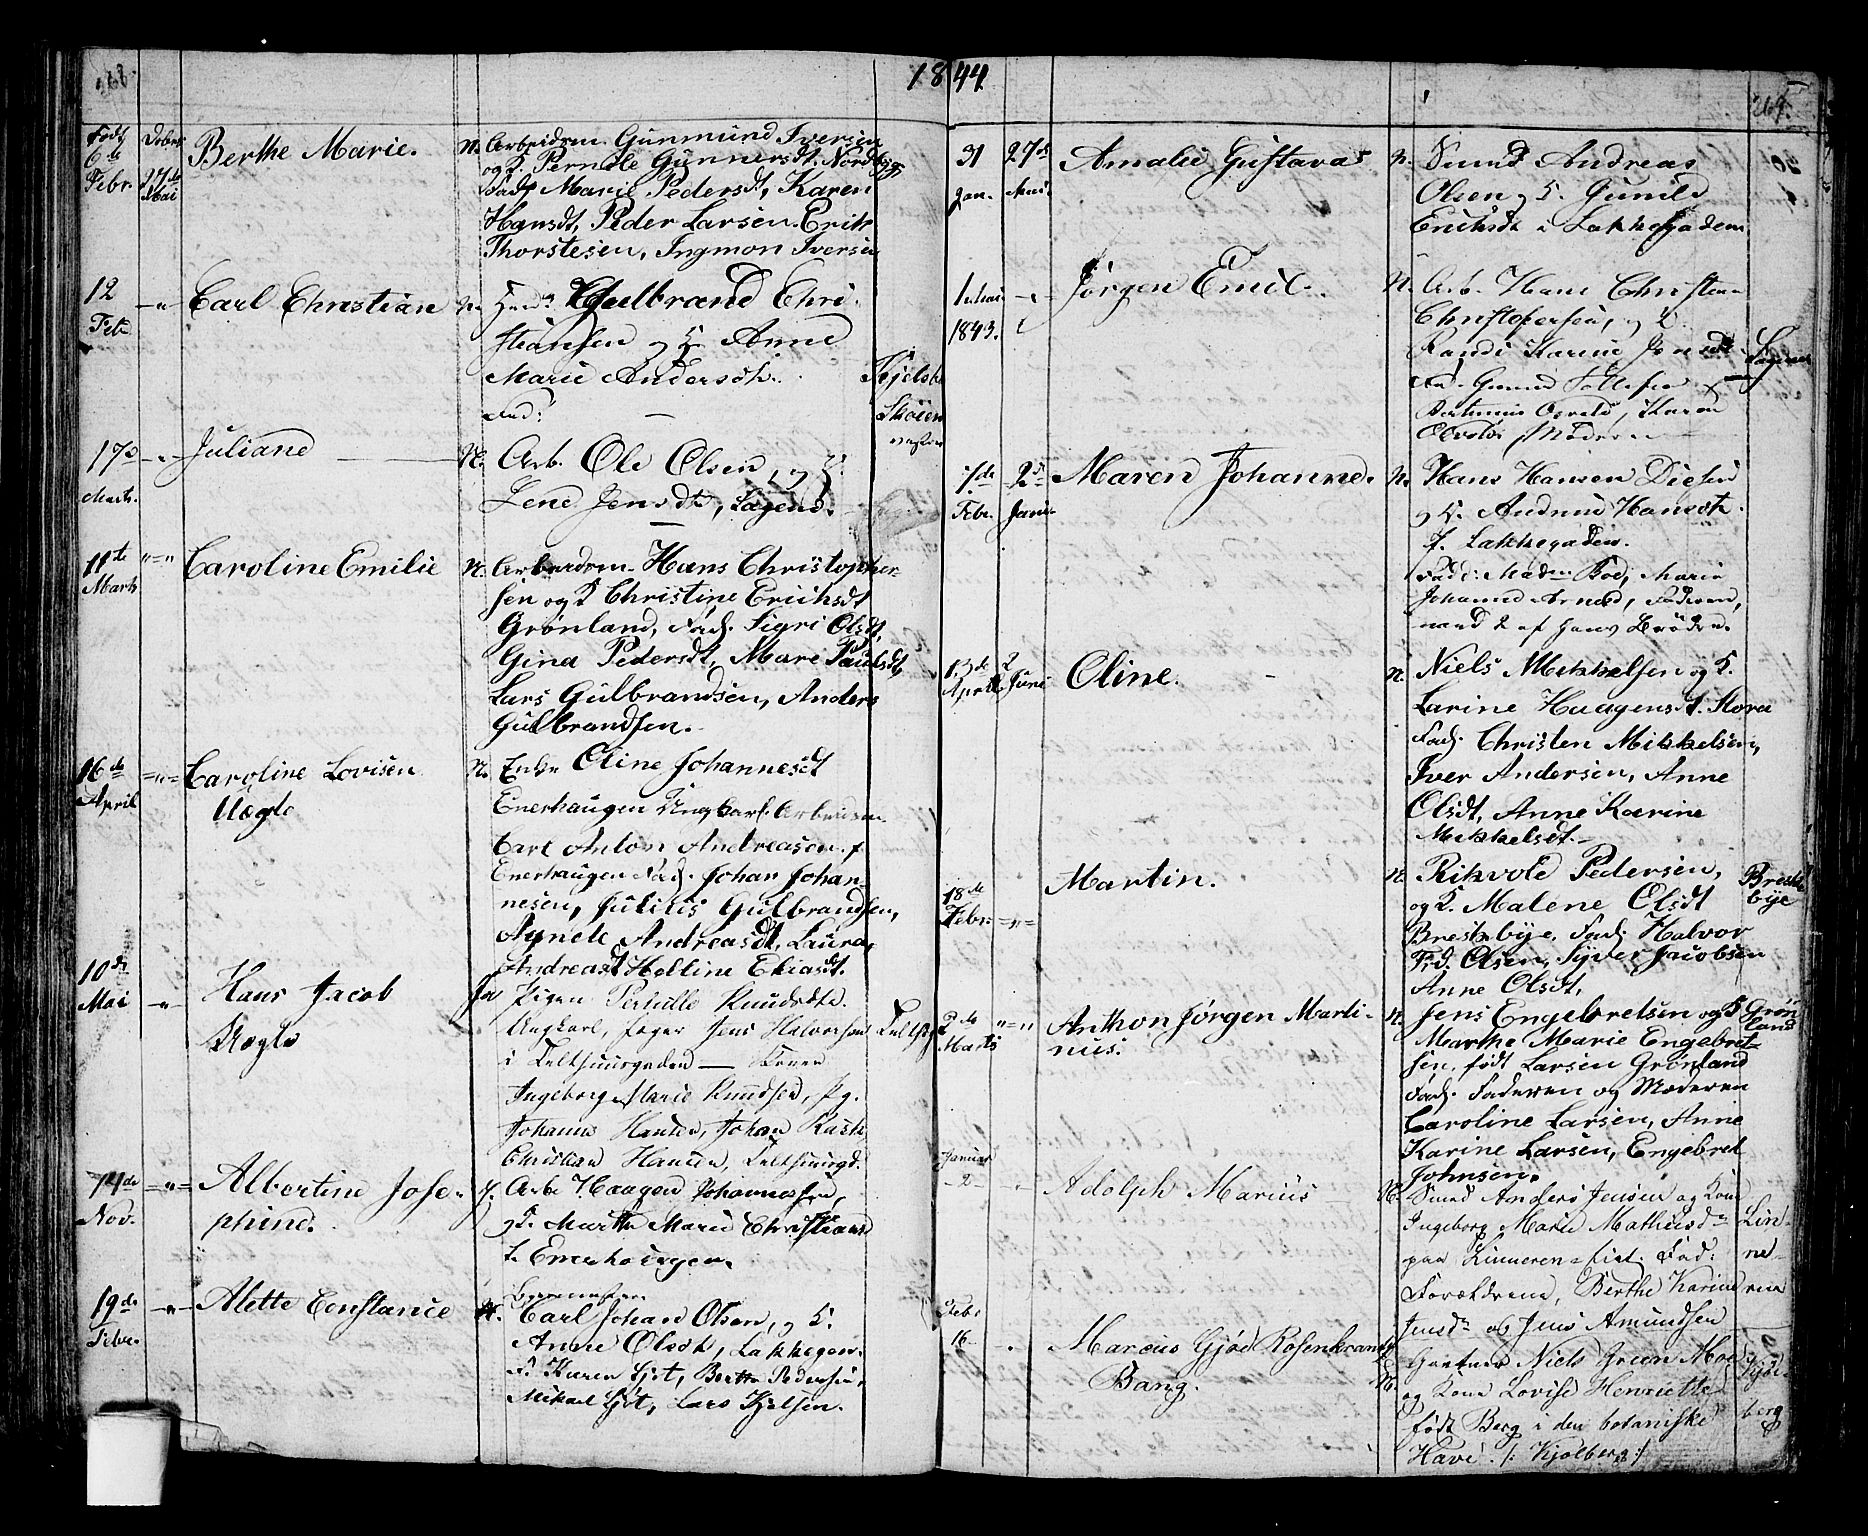 1844
264.
Født 6te Febr.
Døbt 27de Mai
Berthe Marie.
N. Arbeidsm. Gunmund Iversen
og K. Pernele Gunnersdt. Nordbyg
Fadj Marie Pedersdt, Karen
Hansdt, Peder Larsen, Erik
Thorstesen, Ingmon Iversen
12 Feb
Carl Christian
N. Gulbrand Chri-
stiansen og K. Anne
Marie Andersdt.
Fad:
Skøien
17de Marts.
Juliane
N. Arb. Ole Olsen, og K.
Lene Jensdt, Sagene.
11te Marts
Caroline Emilie
N. Arbeidsm. Hans Christopher
sen og K Christine Erichsdt
Grønland, Fadj. Sigri Olsdt,
Gina Pedersdt, Mare Paulsdt,
Lars Gulbrandsen, Anders
Gulbrandsen.
16de April
Caroline Lovisen
Uægte
N. Enke Oline Johannesdt
Enerhaugen Ungkarl. Arbeidsm
Carl Anton Andreasen. f
Enerhaugen Fadj. Johan Johan-
nesen, Julius Gulbrandsen,
Agnete Andreasdt, Laura
Andreasdt Helline Eliasdt.
10de Mai
Hans Jacob
Uægte
Ja Pigen Pernille Knudsdtr.
Ungkarl, Jæger Jens Halvorsen
i Telthuusgaden —
Ingeborg Marie Knudsen, Pg.
Johanne Hansen, Johan Rask
Christian Hansen, Telthuusgd.
14de Nov.
Albertine Jose-
phine.
J. Arb. Haagen Johannessen,
og K. Marthe Marie Christians
f. Enerhougen.
19de Febr.
Alette Constance
N. Carl Johan Olsen, og K.
Anne Olsdt, Lakkegen.
F. Karen Sjøt, Berthe Pedersen,
Mikael Sjøt, Lars Kjelsen.
31 Jan.
27de Mai
Amalie Gustava
N. Smed Andreas
Olsen og K. Gunild
Erichsdt i Lakkegaden
1 Mai 1843.
Jørgen Emil.
N. Arb. Hans Christian
Christophersen, og K.
Randi Karine Jensdt
Sagene
7de Febr.
2de Juni
Maren Johanne.
N. Hans Hansen Diesen
og K. Andrine Hansdt.
f. Lakkegaden.
Fadd: Madm Boe, Marie
Johanne Arnes, Faderen,
13de April
2 Juni
Oline.
N. Niels Mikkelsen og K.
Larine Haagensdt.
Fadj. Christen Mikkelsen,
Iver Andersen, Anne
Olsdt, Anne Karine
Mikkelsdt.
18de Febr:
Martin.
N. Rikvold Pedersen,
og K. Malene Olsdt
Brekkebye, Fadj Halvor
Frd. Olsen, Syver Jacobsen
Anne Olsdt,
Brekke
bye
2de Marts
Anthon Jørgen Marti-
nus.
N. Jens Engebretsen og K
Marthe Marie Engebret-
sen, født Larsen Grønland
Fadj. Faderen og Moderen
Caroline Larsen, Anne
Karine Larsen, Engebret
Johnsen.
Grøn
land
Januar 2
Adolph Marius
N. Smed Anders Jensen og Kone
Ingeborg Marie Mathiasdr
paa Linneren
Forældrene, Berthe Karine
Jensdr og Jens Amundsen
Lin-
ne-
ren
Feb: 16
Marcus Gjøe Rosenkrantz
Bang.
N. Gartner Niels Green Moe
og Kone Lovise Henriette
født Berg i den botaniske
Have. /: Kjølberg :/
Kjøl-
berg